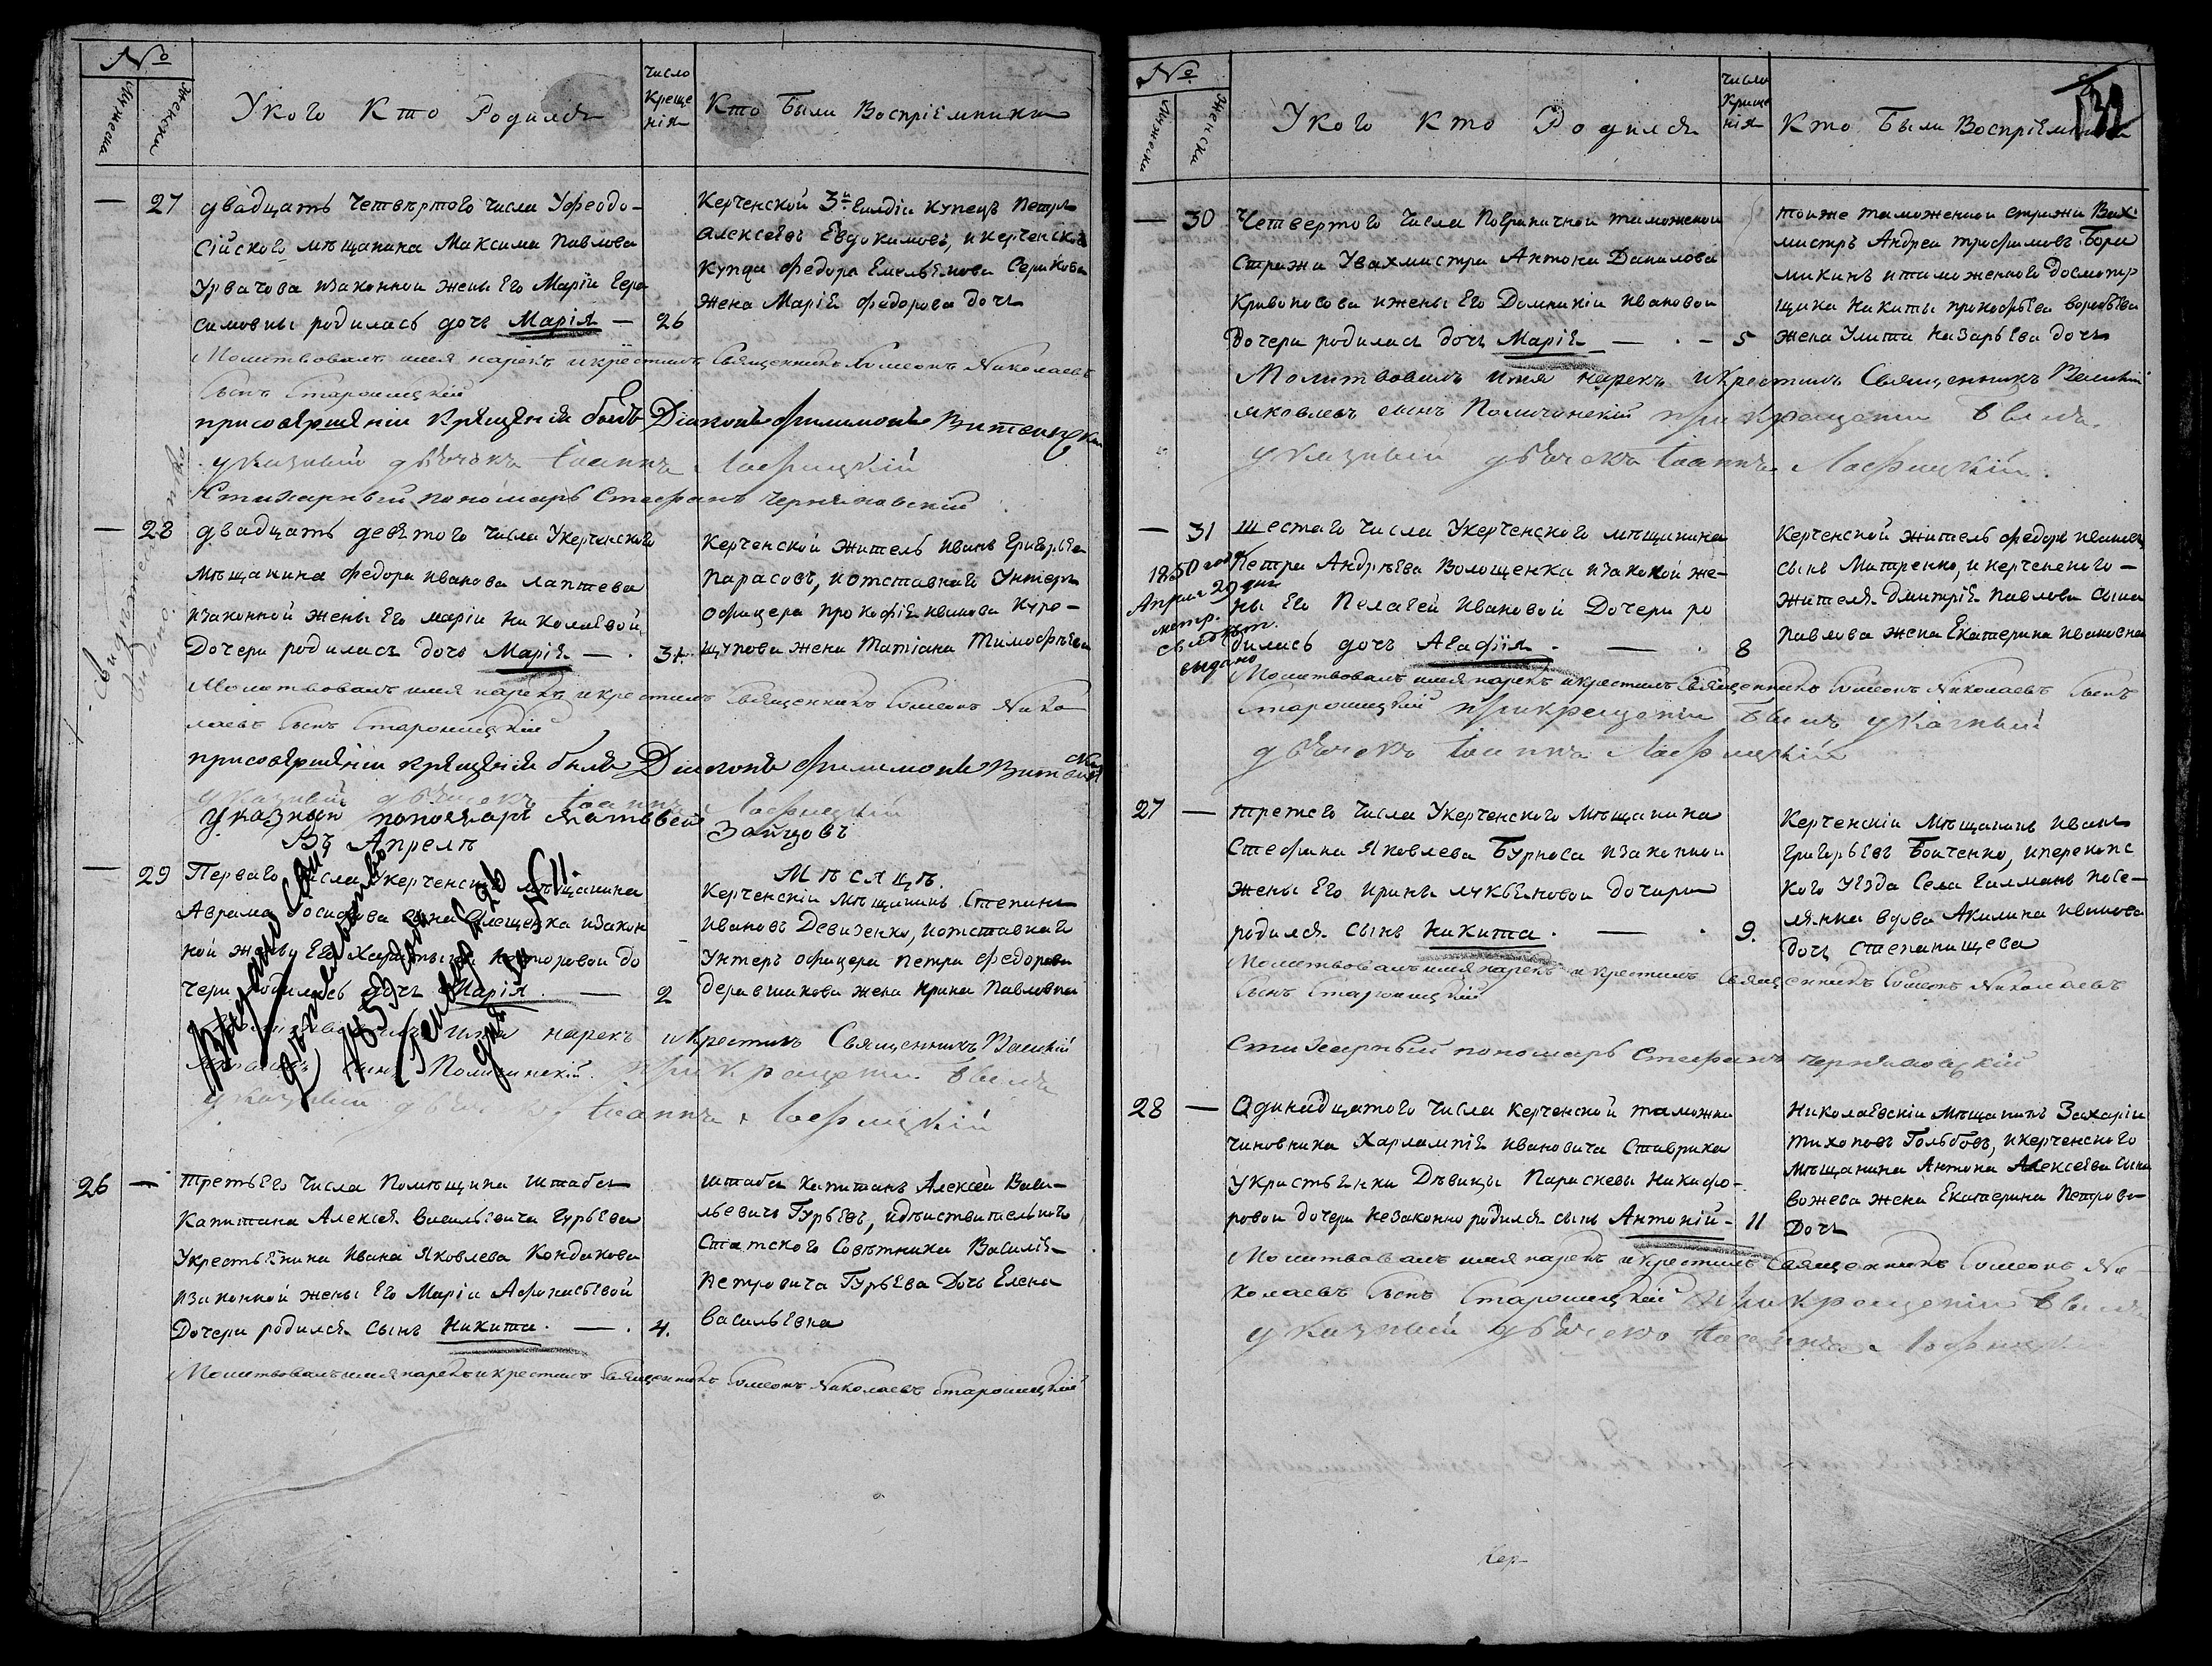 №
Мужеска
Женска
У кого Кто Родился
Число
Креще
нія
Кто Были Воспріемники
27
двадцать Четвертого Числа У Феодо-
сійского мѣщанина Максима Павлова
изаконной жены Его Маріи Гера
симовны родилась дочь Марія — 26
Керченской 3й Гилдіи Купецъ Петръ
Алексѣевъ Евдокимовъ, и Керченского
Купца Федора Емельянова Серикова
жена Марія Федорова дочь
Молитвовалъ имя нарекъ и крестилъ Священникъ Симеонъ Николаевъ
Сынъ Старошицкій
при совѣршѣніи крѣщѣнія былъ Діаконъ Филимонъ
указный дьячокъ Іоаннъ Лосфицкій
Стихарный пономарь Стефанъ Черняховскій
28
двадцать девятого Числа У Керченского
Мѣщанина Федора Иванова Лаптева
изаконной жены Его Маріи Николаевой
Дочери родилась дочь Марія — 31.
Керченской житель Иванъ Григорьев
Парасовъ, и отставного Унтеръ
Офицера Прокофія Иванова Куро-
щупова жена Татіана Тимофѣева
Свидѣтельство
видано
Молитвовалъ имя нарекъ и крестилъ Священникъ Симеонъ Нико
лаевъ Сынъ Старошицкій
при совѣршѣніи крѣщѣнія былъ Діаконъ Филимонъ
указный дьячекъ Іоаннъ Лосфицкій
указной пономарь Матвѣй Зайцовъ
Въ Апрелѣ Мѣсяцѣ.
29
Перваго Числа У Керченского мѣщанина
Аврама сына изакон
ной жены Его до
чери родилась дочь Марія — 2
Керченскій Мѣщанинъ Степанъ
Ивановъ Девиченко, и отставного
Унтеръ офицера Петра Федорова
жена Ирина Павловна
Выдано
1853 года
Генваря 26
дня за №11.
имя нарекъ и Крестилъ Священникъ Василій
Яковлевъ Сынъ Поличинскій. при Крещеніи былъ
указный дьячекъ Іоаннъ Лосфицкій
26
третьего Числа Помѣщика штабсъ
Капитана Алексѣя Васильевича Гурьева
У Крестьянина Ивана Яковлева Кондакова
изаконной жены Его Маріи Афонасьевой
Дочери родился Сынъ Никита. — 4.
штабсъ Капитанъ Алексѣй Васи-
льевичъ Гурьевъ, и дѣиствительного
Статского Совѣтника Василія
Петровича Гурьева Дочь Елена
Васильевна
Молитвовалъ имя нарекъ и крестилъ Священникъ Симеонъ Николаевъ Старошицкій
№
Мужеска
Женска
У кого Кто Родился
Число
Креще
нія
Кто Были Воспріемники
132
30
Четвертого Числа Пограничной таможеной
Стражи У вахмистра Антона Данилова
Кривоносова и жены Его Домникіи Ивановой
Дочери родилась дочь Марія — 5
тоиже таможенной стражи Вах-
мистръ Андреи Трофимовъ Бори
микинъ и таможенного Досмотр
щика Никиты Прокофьева
жена Улита Назарьева дочь
Молитвовалъ имя нарекъ и Крестилъ Священникъ Василій
Яковлевъ сынъ Поличинскій при крещеніи былъ
указный дьячекъ Іоаннъ Лосфицкій.
31
Шестаго Числа У Керченского мѣщанина
Петра Андрѣева Волощенка изаконой же-
ны Его Пелагеи Ивановой Дочери ро
дилась дочь Агафія. — 8
Керченской житель Федоръ Ивановъ
сынъ Матренко, и Керченского —
жителя Дмитрія Павлова сына
Павлова жена Екатерина Ивановна
1850 года
Апрля 29 дня
метр.
свидѣт.
выдано
Молитвовалъ имя нарекъ и крестилъ Священникъ Симеонъ Николаевъ Сынъ
Старошицкій при крещеніи былъ указный
дьячекъ Іоаннъ Лосфицкій
27
третего Числа У Керченского Мѣщанина
Стефана Яковлева Бурноса изаконной
жены Его Ирины Лукьяновой дочери
родился сынъ Никита. — 9.
Керченскіи Мѣщанинъ Иванъ
Григорьевъ Бойченко, и перекопс
кого Уезда Села посе-
лянка вдова Акилина Иванова
дочь Степанищева
Молитвовалъ имя нарекъ и крестилъ Священникъ Симеонъ Николаевъ
Сынъ Старошицкій
Стихарный пономарь Стефанъ Черняховскій
28
Одинадцатого Числа Керченской таможни
Чиновника Харлампія Ивановича Ставрика
У крестьянки Дѣвицы Параскевы Никифо-
ровой дочери незаконно родился сынъ Антоній — 11
Николаевскіи мѣщанинъ Захаріи
Тихоновъ Голъбовъ, и Керченского
Мѣщанина Антона Алексеева сына
Божева жена Екатерина Петрова
Дочь
Молитвовалъ имя нарекъ и крестилъ Священникъ Симеонъ Ни
колаевъ Сынъ Старошицкій при Крещеніи былъ
указный дьячекъ Іоаннъ Лосфицкій
Кер